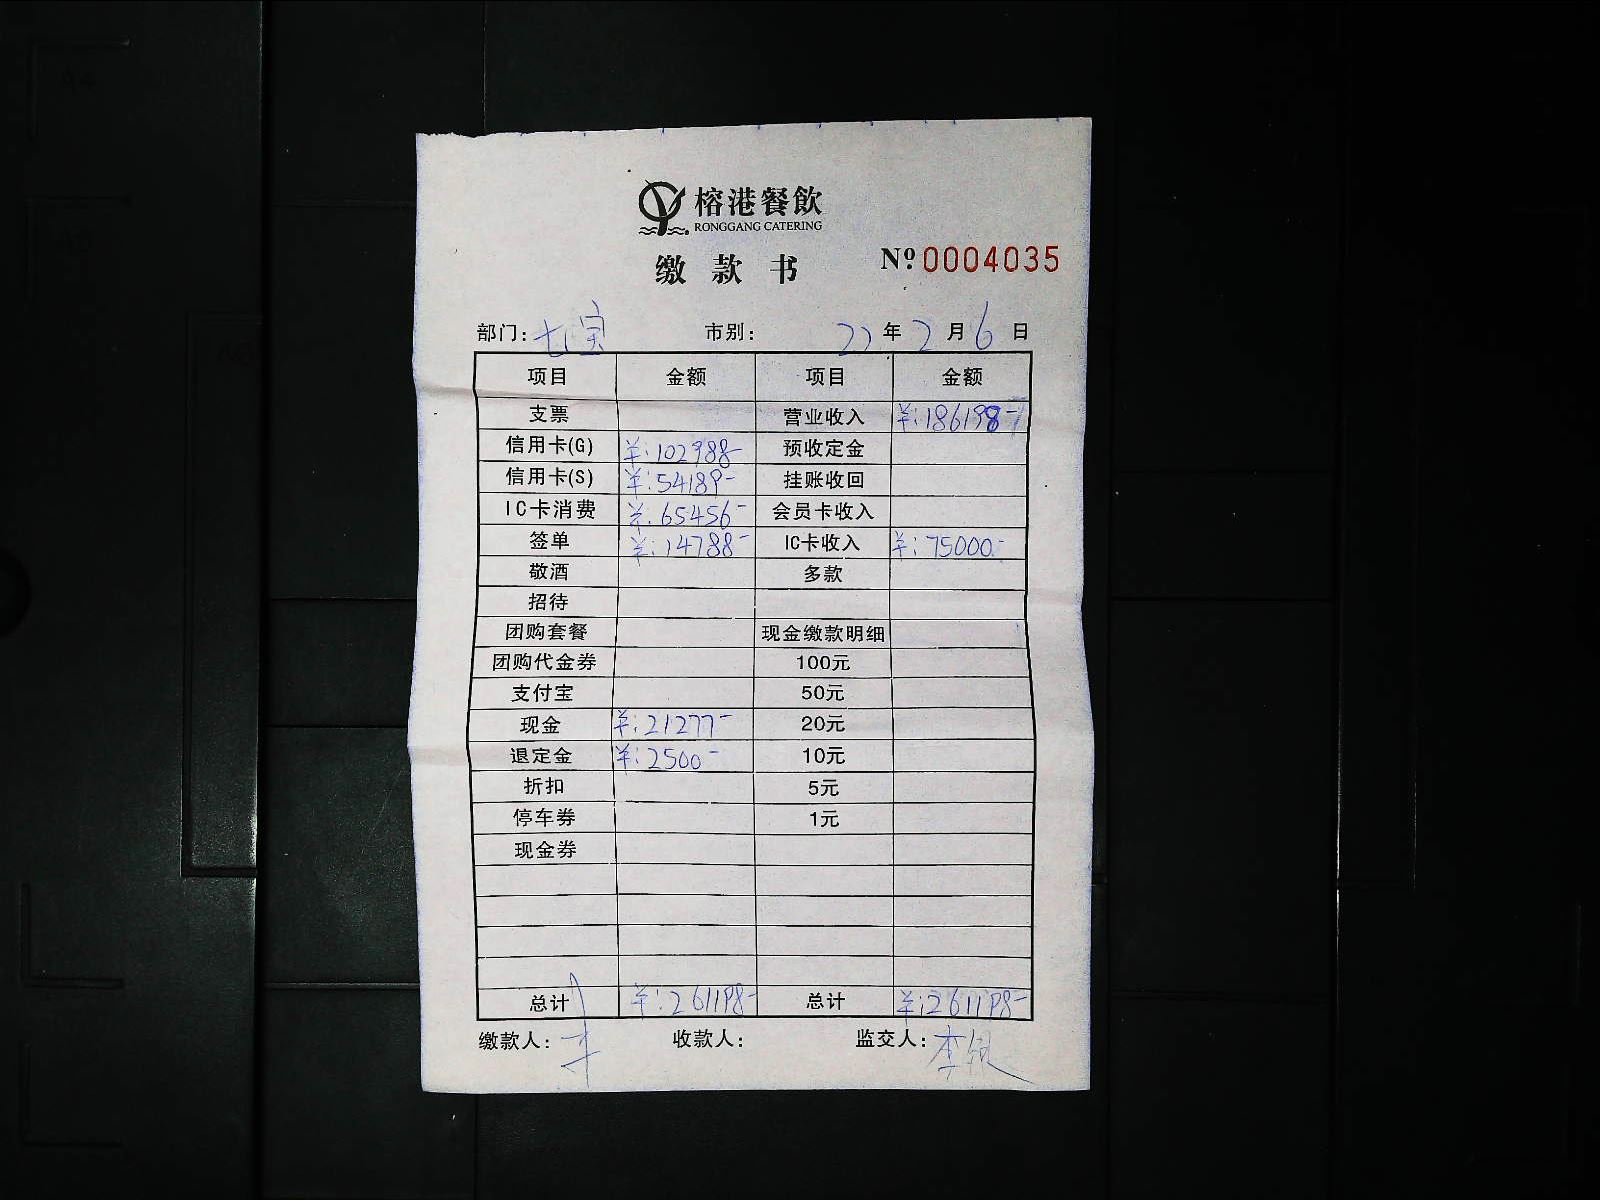 榕港餐飲
RONGGANG CATERING
缴款书 Nº 0004035
部门: 七宝 市别: 22年2月6日
项目 金额 项目 金额
支票 营业收入 ¥:186198-
信用卡(G) ¥:102988- 预收定金
信用卡(S) ¥:54189- 挂账收回
IC卡消费 ¥:65456- 会员卡收入
签单 ¥:14788- IC卡收入 ¥:75000-
敬酒 多款
招待
团购套餐 现金缴款明细
团购代金券 100元
支付宝 50元
现金 ¥:21277- 20元
退定金 ¥:2500- 10元
折扣 5元
停车券 1元
现金券
总计 ¥:261198- 总计 ¥:261198-
缴款人: 收款人: 监交人: 李银